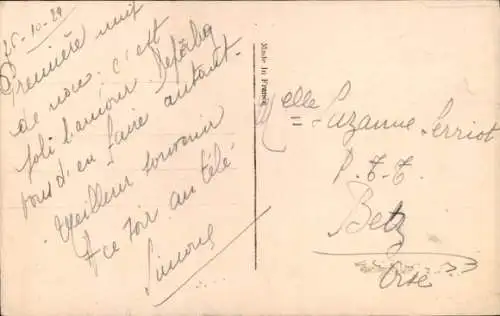 26-10-29
Première nuit
de noce; c'est
joli l'amour
vous d'en faire autant.
Meilleur souvenir
A ce soir au télé
Simone
Made in France
Melle Suzanne Perriot
P.T.T.
Betz
Oise